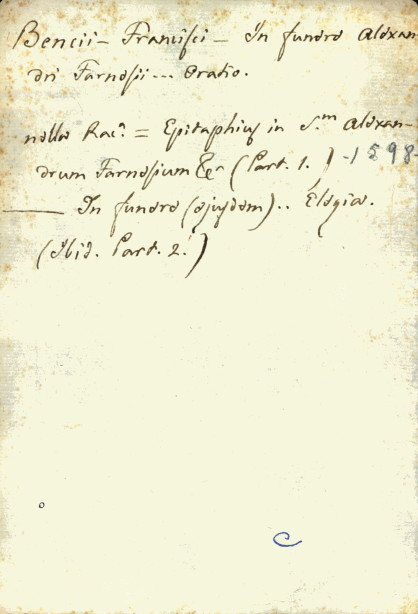 Bencii - Francisci - In funere Alexan-
dri Farnesii... Oratio.
nella Rac.ª = Epitaphius in S.m Alexan-
drum Farnesium &c (Part. 1. ) - 1598
—— In funere (ejusdem).. Elegia.
(Ibid. Part. 2.)